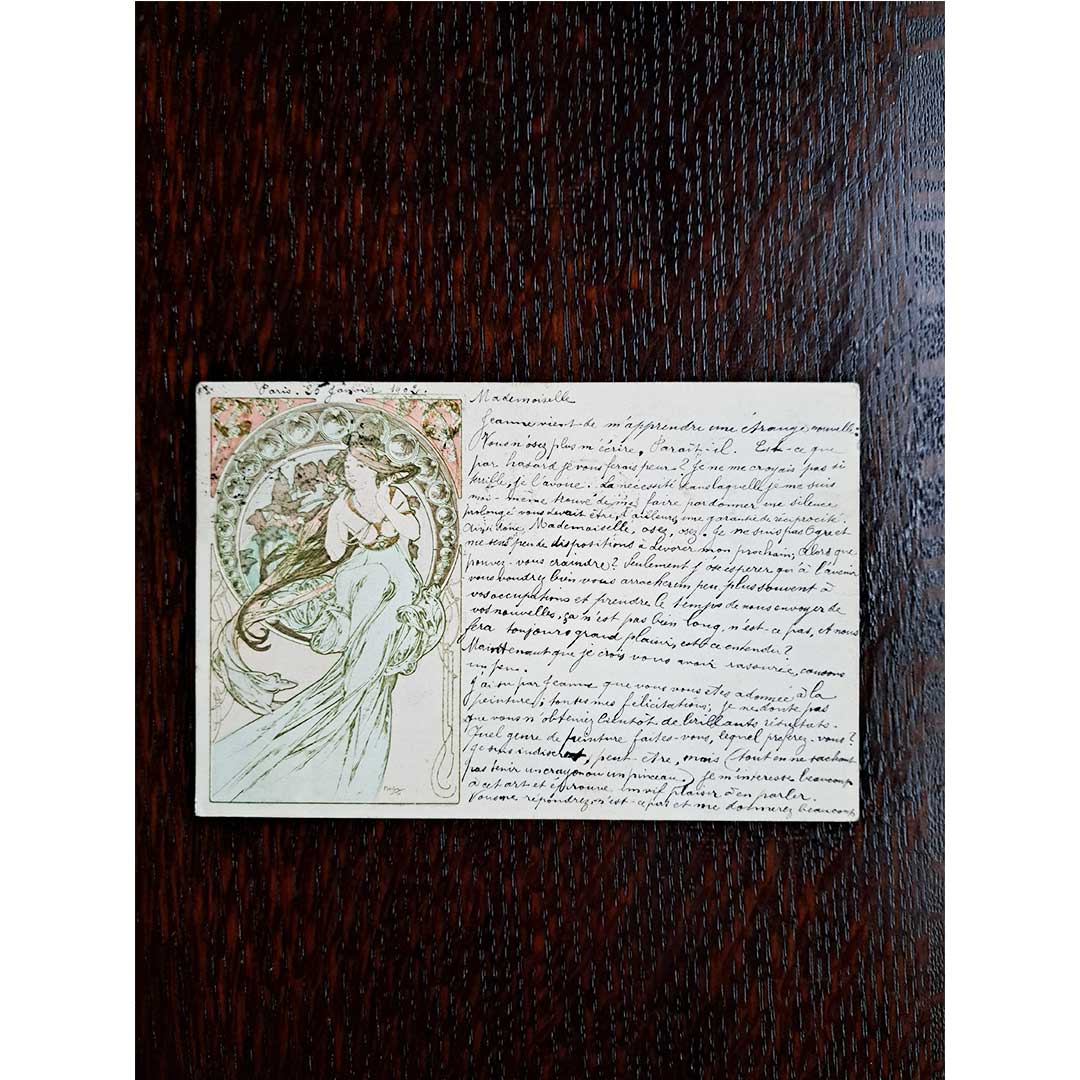 Paris, 25 Janvier 1902.
Mademoiselle
Jeanne vient de m'apprendre une étrange nouvelle:
Vous n'osez plus m'écrire, Paraît-il. Est-ce que
par hasard je vous ferais peur? Je ne me croyais pas si
terrible, je l'avoue. La nécessité dans laquelle je me suis
moi-même trouvé de me faire pardonner une silence
prolongé vous devait être d'ailleurs une garantie de réciprocité.
Ainsi donc, Mademoiselle osez, osez. Je ne suis pas Ogre et
me sens peu de dispositions à dévorer mon prochain; Alors que
pouvez-vous craindre? Seulement j'ose espérer qu'à l'avenir
vous voudrez bien vous arracher un peu plus souvent à
vos occupations et prendre le temps de nous envoyer de
vos nouvelles, ça n'est pas bien long, n'est-ce pas, et nous
fera toujours grand plaisir, est-ce entendu?
Maintenant que je crois vous avoir rassurée, causons
un peu.
J'ai su par Jeanne que vous vous êtes adonnée à la
peinture; toutes mes félicitations; je ne doute pas
que vous n'obteniez bientôt de brillants résultats.
Quel genre de peinture faites-vous, lequel préférez-vous?
Je suis indiscret, peut-être, mais (tout en ne sachant
pas tenir un crayon ou un pinceau) je m'intéresse beaucoup
à cet art et éprouve un vif plaisir à en parler.
Vous me répondrez, n'est-ce pas et me donnerez beaucoup
Mucha